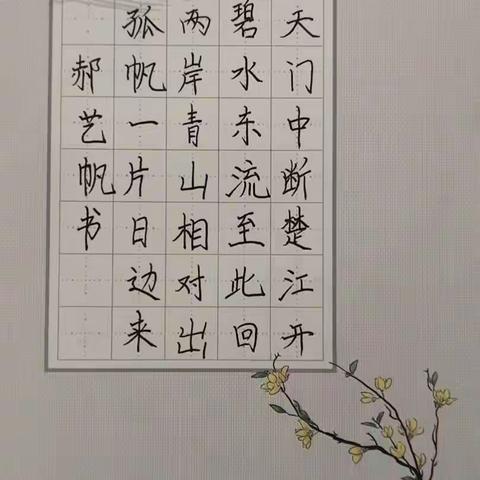 天门中断楚江开
碧水东流至此回
两岸青山相对出
孤帆一片日边来
郝艺帆书